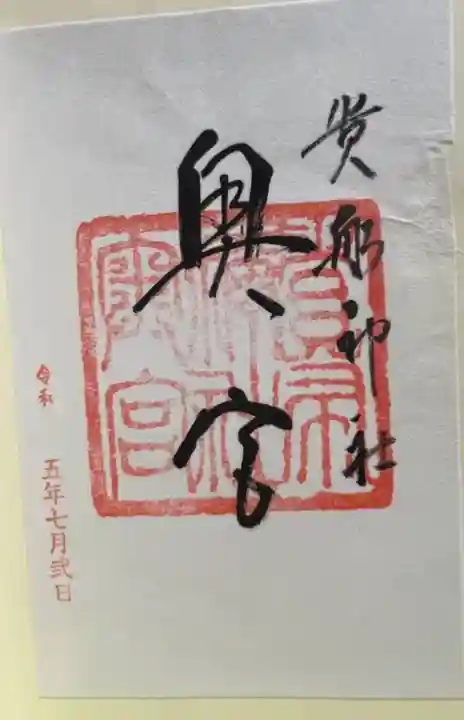 貴船神社
奥宮
令和
五年七月弐日